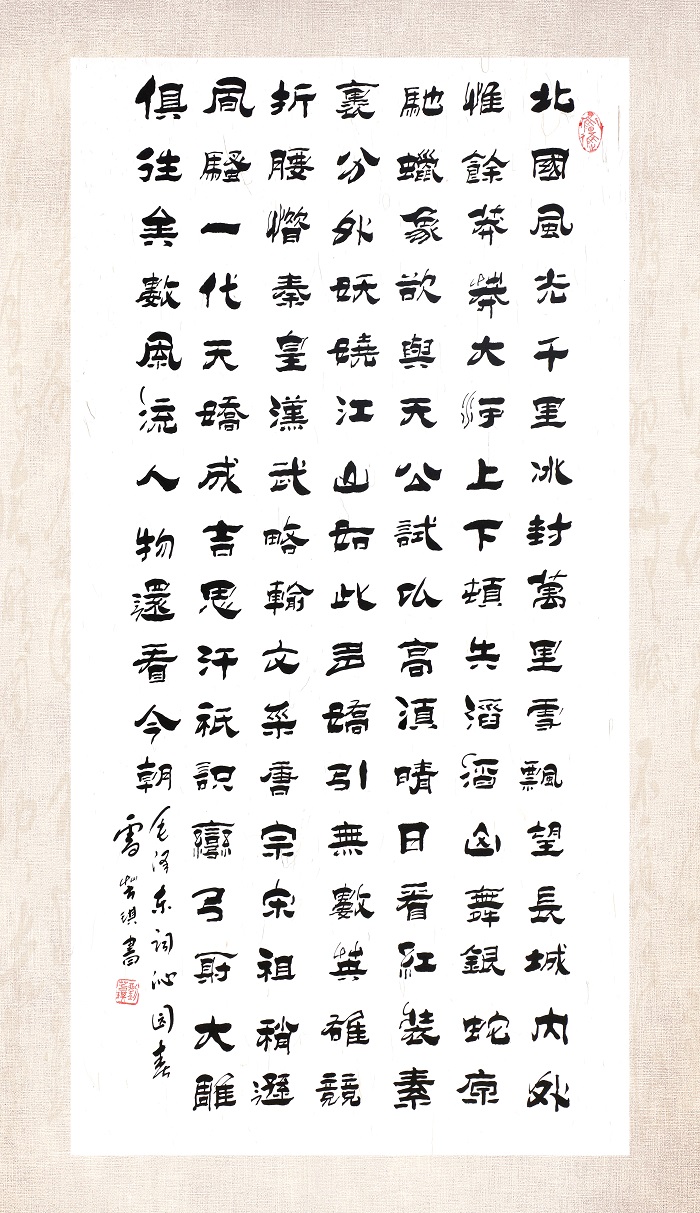 北國風光千里冰封萬里雪飄望長城內外
惟餘莽莽大河上下頓失滔滔山舞銀蛇原
馳蠟象欲與天公試比高須晴日看紅裝素
裹分外妖嬈江山如此多嬌引無數英雄競
折腰惜秦皇漢武略輸文采唐宗宋祖稍遜
風騷一代天嬌成吉思汗祇識彎弓射大雕
俱往矣數風流人物還看今朝
毛泽东词沁园春
雪 琪書